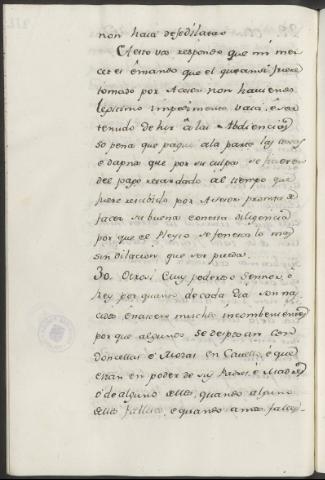 non haia de se dilatar.
A esto vos respondo que mi mer
cet es é mando que el que ansi fuere
tomado por Asesor non haviendo
lexitimo impedimento vaia é sea
tenudo de hir á las Abdiencias
so pena que pague á la parte las costas
e dapnos que por su culpa se fizieren
del pago retardado al tiempo que
fuere rescibido por Asesor prometa de
facer su buena e onesta diligencia
por que el Pleyto se fenesca lo mas
sin dilacion que ser pueda.
30. Otrosi Muy poderoso Sennor é
Rey por quanto de cada dia son na
cidos, e nascen muchos inconbenientes
por que algunos se desposan con
doncellas é Mozas en Cavellos, é que
estan en poder de sus Padres, é Madres
ó de alguno dellos, quando alguno
dellos fallece, e quando amos falles-